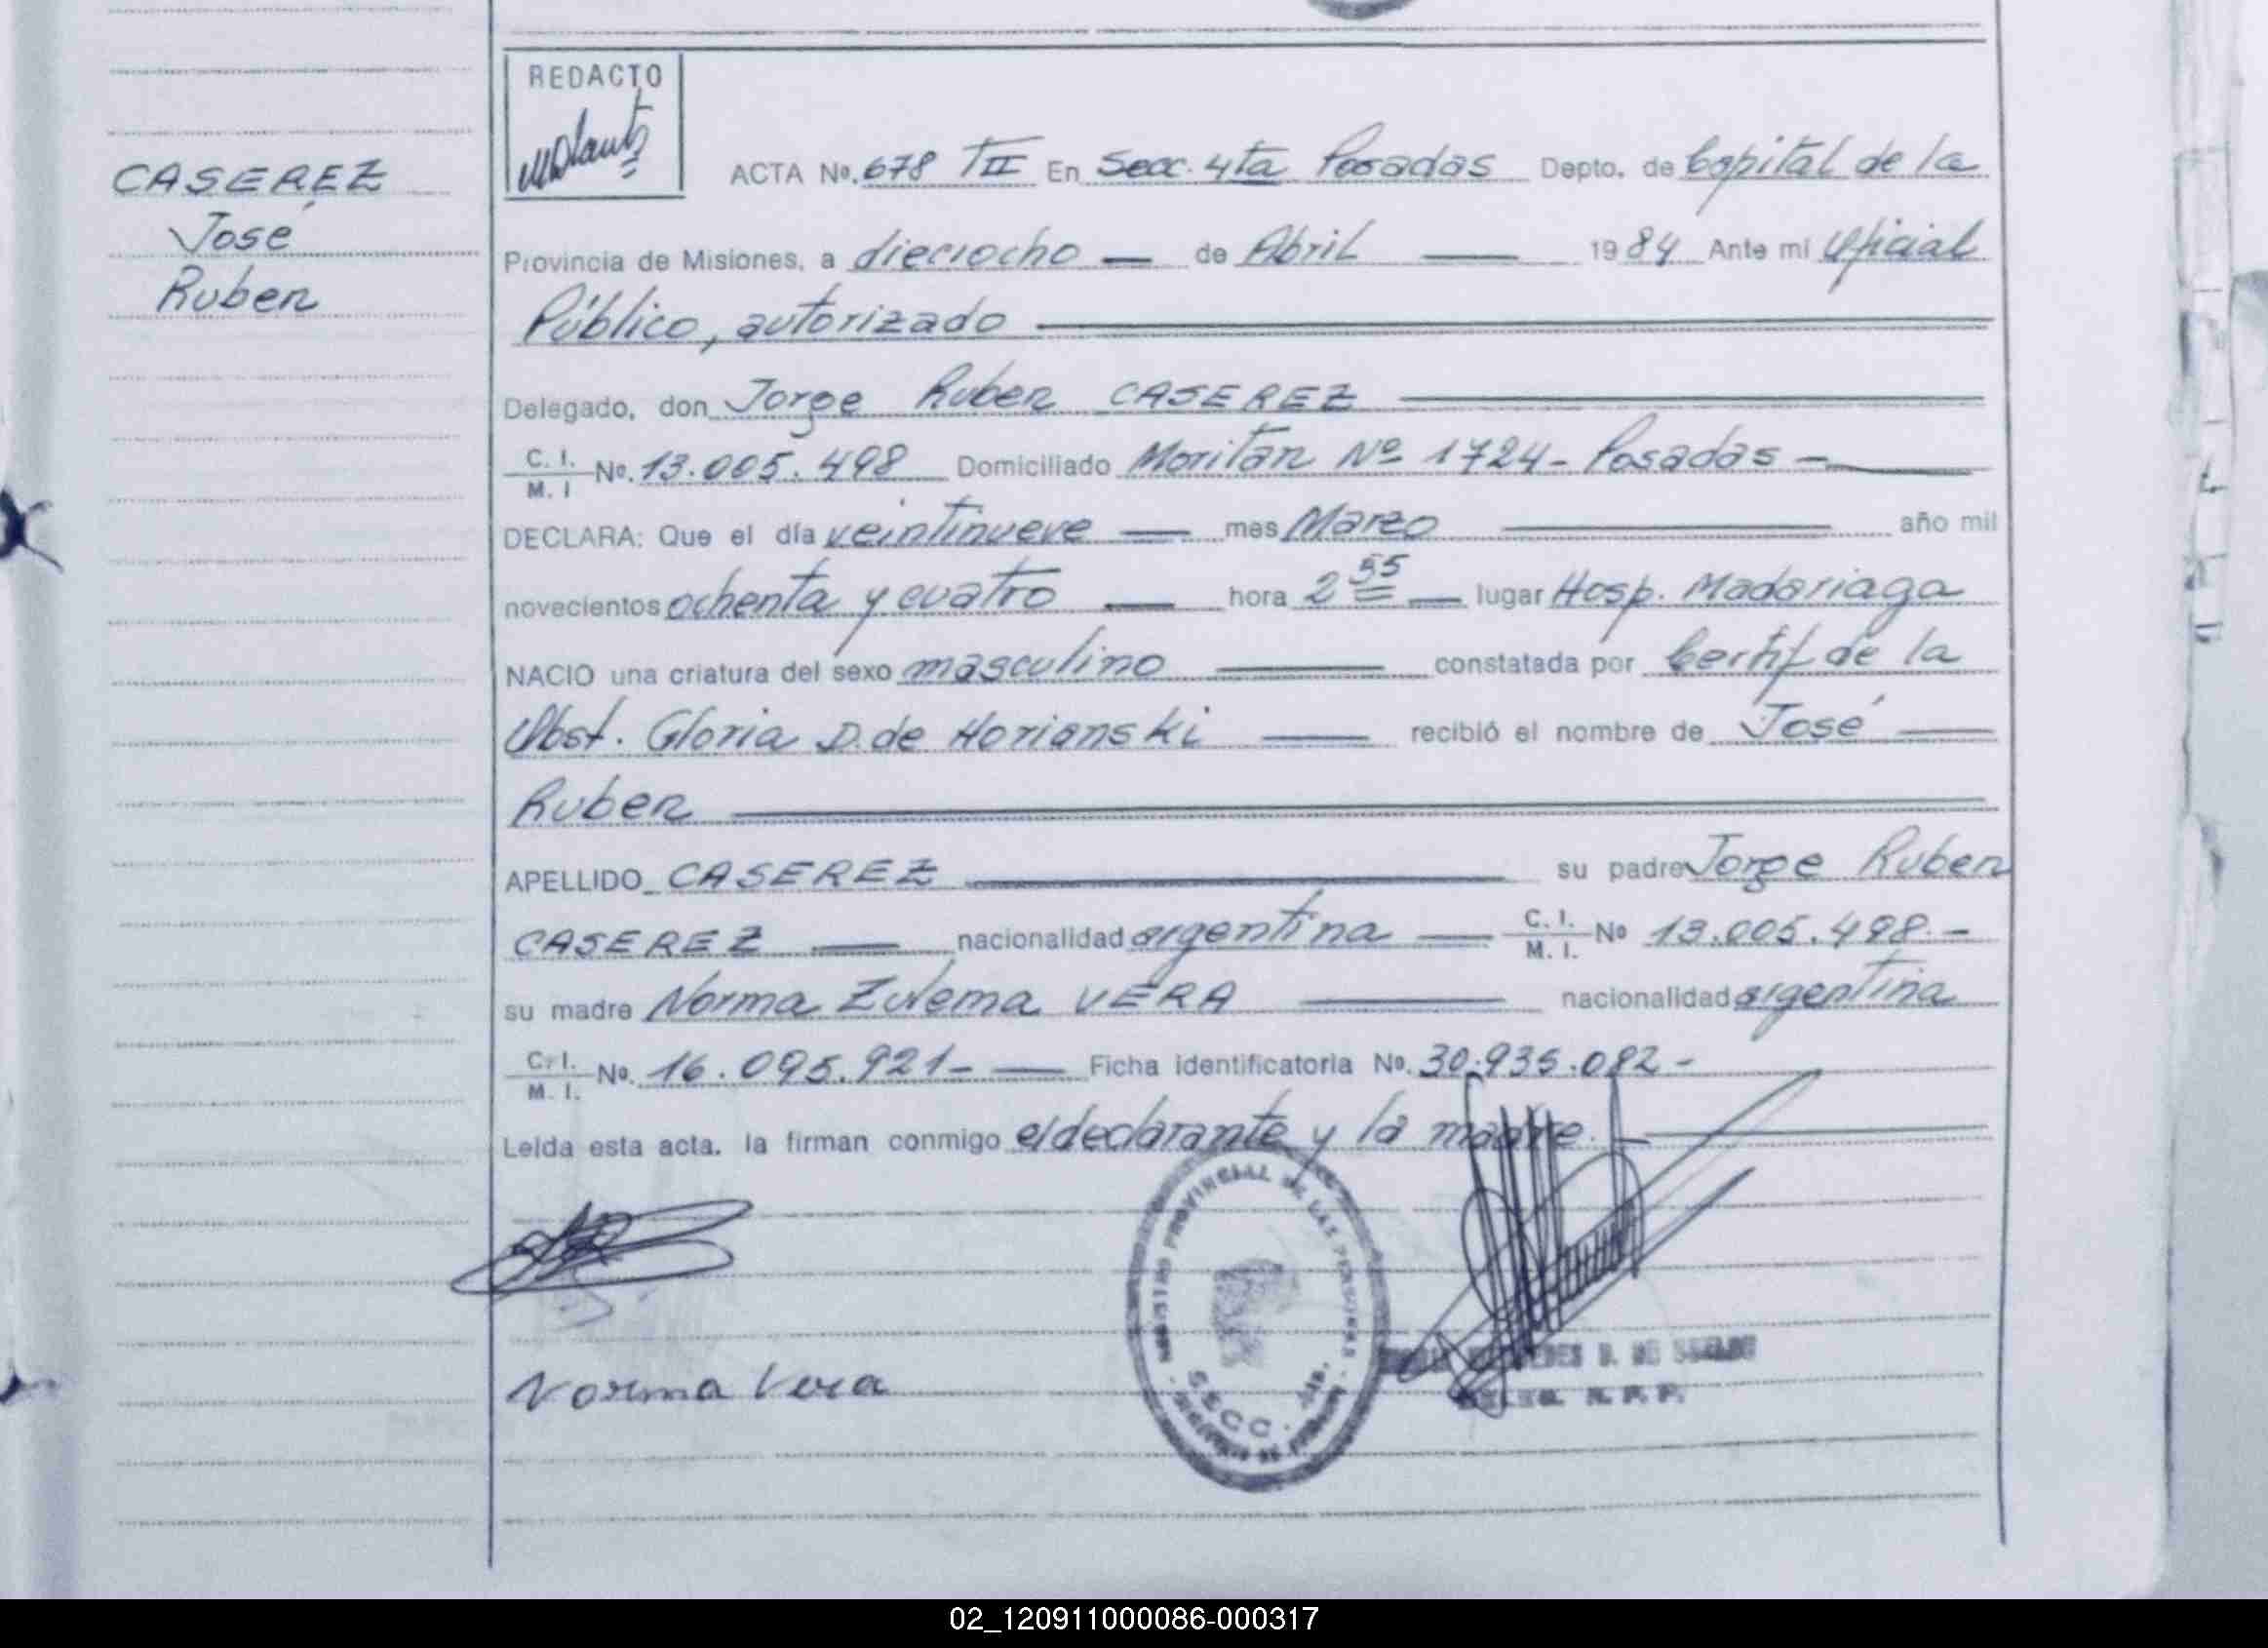 REDACTO
CASEREZ
José
Ruben
ACTA Nº. 678 TII En Secc. 4ta Posadas Depto. de Capital de la
Provincia de Misiones, a dieciocho — de Abril — 1984 Ante mi Oficial
Público, autorizado
Delegado, don Jorge Ruben CASEREZ
C. I. / M. I Nº. 13.005.498 Domiciliado Moritan Nº 1724 - Posadas -
DECLARA: Que el día veintinueve — mes Marzo — año mil
novecientos ochenta y cuatro — hora 2 55 — lugar Hosp. Madariaga
NACIO una criatura del sexo masculino — constatada por Certif de la
Obst. Gloria D. de Horianski — recibió el nombre de José —
Ruben
APELLIDO CASEREZ — su padre Jorge Ruben
CASEREZ — nacionalidad argentina — C. I. / M. I. Nº 13.005.498.-
su madre Norma Zulema VERA — nacionalidad argentina
C. I. / M. I. Nº. 16.095.921- — Ficha identificatoria Nº. 30.935.082 -
Leida esta acta, la firman conmigo el declarante y la madre. -
REGISTRO PROVINCIAL DE LAS PERSONAS
SECC.
Norma Vera
02_120911000086-000317